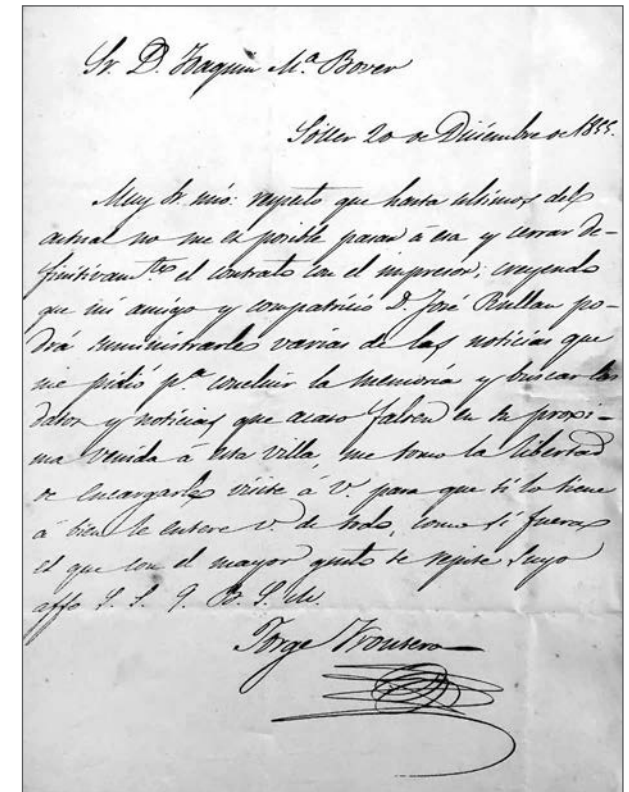 Sr. D. Joaquin M.ª Bover
Sóller 20 de Diciembre de 1855.
Muy Sr. mío: respeto que hasta ultimos del
actual no me es posible pasar á esa y cerrar de-
finitivam.tes el contrato con el impresor; creyendo
que mi amigo y compatricio D. José Rullan po-
drá suministrarle varias de las noticias que
me pidió p.ª concluir la memoria y buscar los
datos y noticias que acaso falten en su proxi-
ma venida á esta villa, me tomo la libertad
de encargarle visite á V. para que si lo tiene
á bien le entere V. de todo, como si fuera
el que con el mayor gusto se repite suyo
affo S. S. q. B. S. M.
Jorge